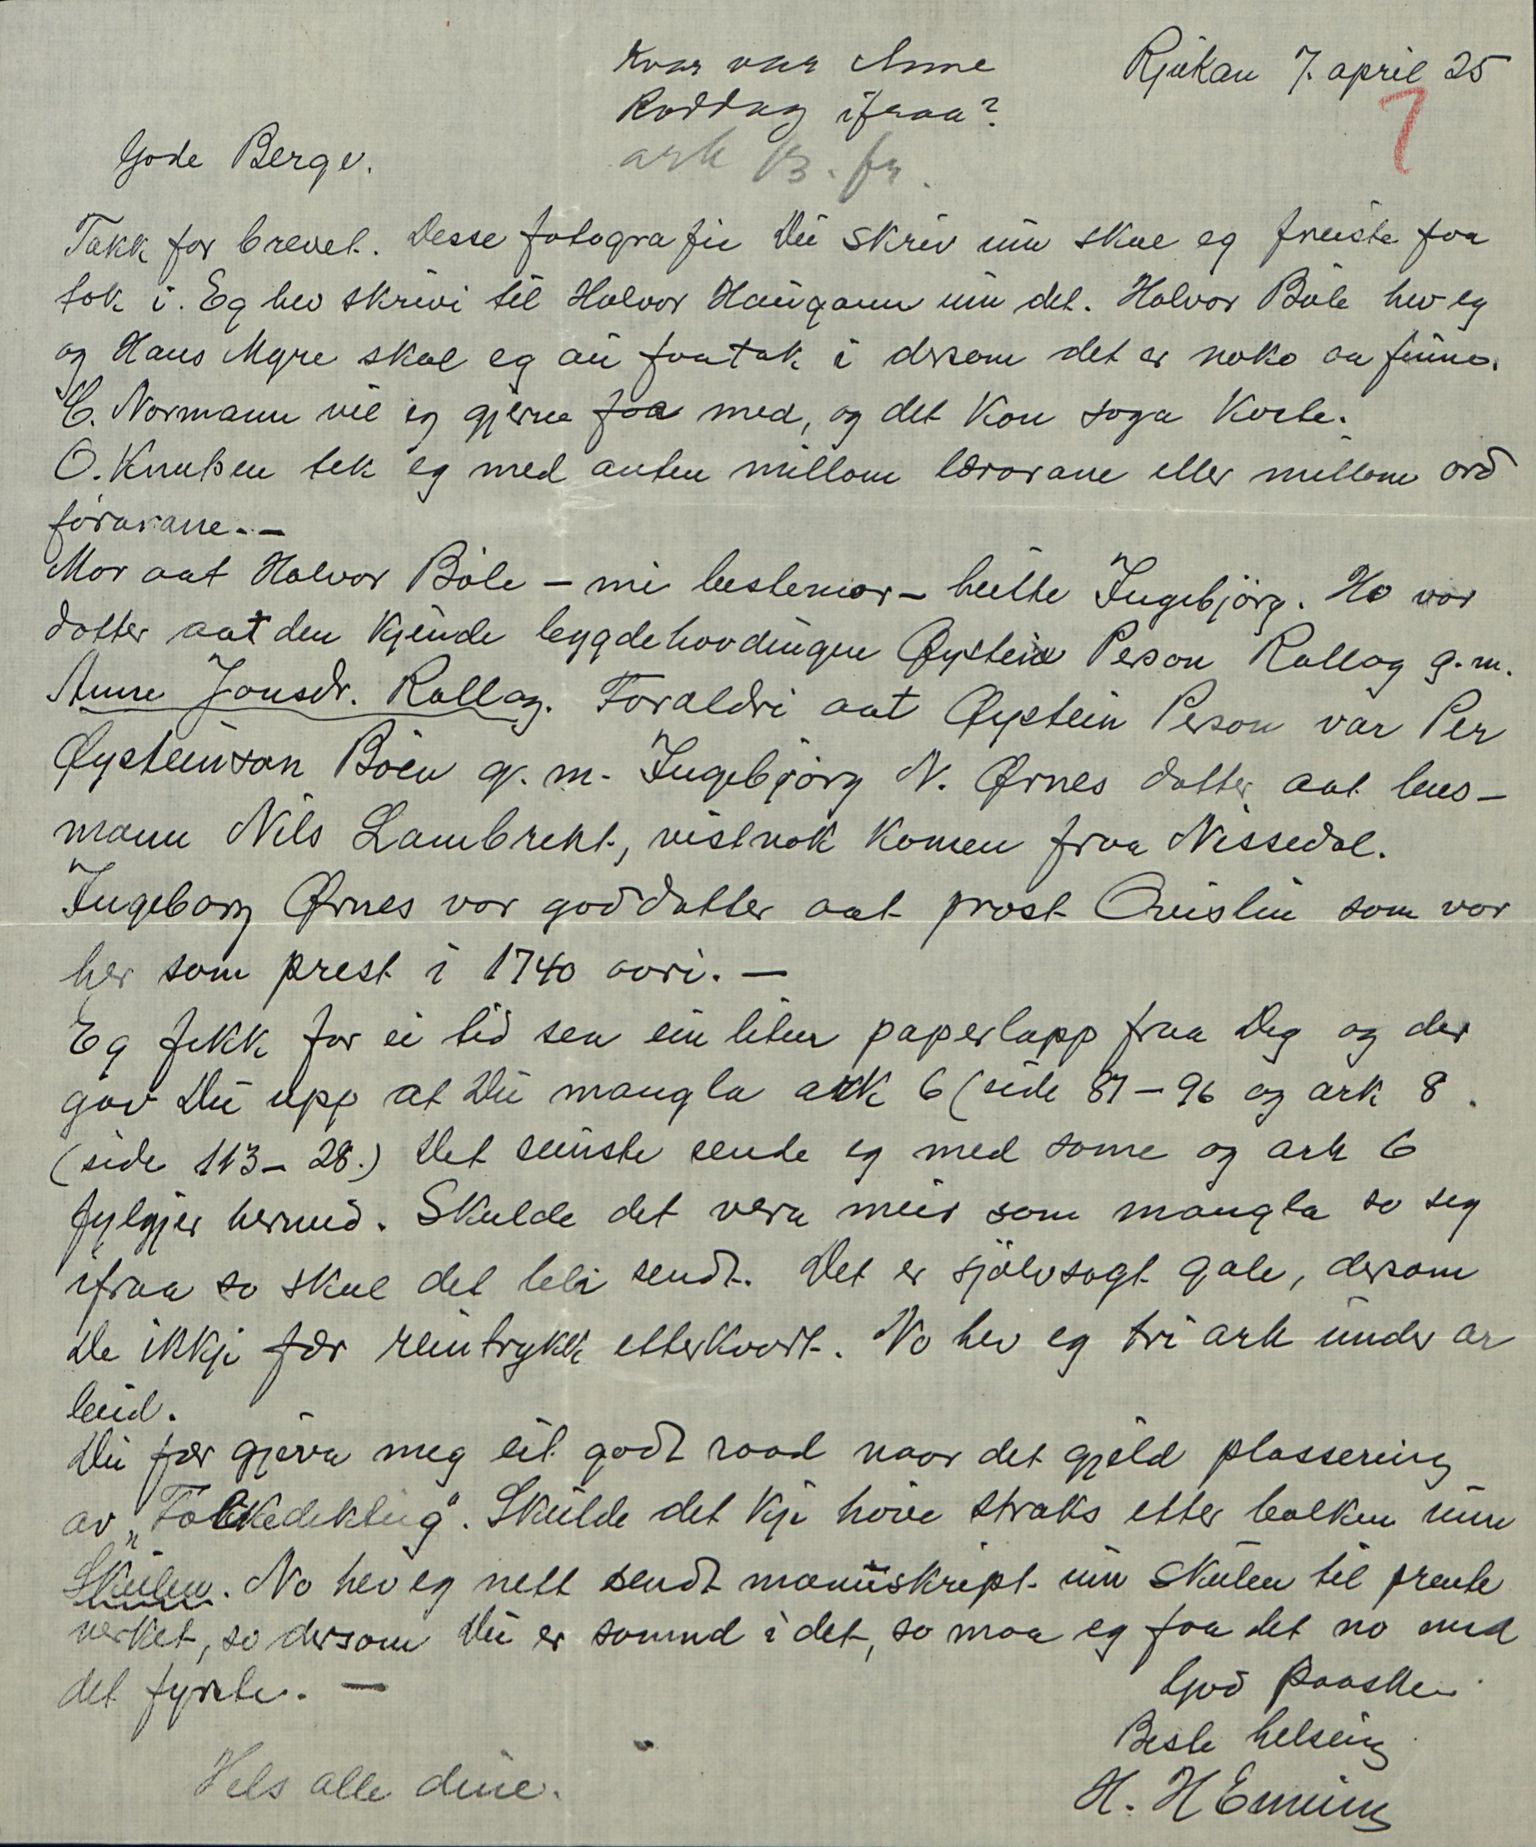 Kvar var Anne
Rollag ifraa?
ark 13. fr.
Rjukan 7. april 25
7
Gode Berge.
Takk for brevet. Desse fotografie Du skriv um skal eg freista faa
tak i. Eg hev skrivi til Halvor Haugann um det. Halvor Bøle hev eg
og Hans Myre skal eg au faa tak i dersom det er noko aa finna.
C. Normann vil eg gjerne faa med, og det kan soga koste.
O. Knutsen tek eg med anten millom lærarane eller millom ord
førarane. –
Mor aat Halvor Bøle – mi bestemor – heitte Ingebjörg. Ho var
dotter aat den kjende bygdehovdingen Øystein Person Rollag g. m.
Anne Jonsdr. Rollag. Foraldri aat Øystein Person var Per
Øysteinson Böen g. m. Ingebjörg N. Ørnes dotter aat lens-
mann Nils Lambrekt, vistnok komen fraa Nissedal.
Ingeborg Ørnes var goddotter aat prost Qvislin som var
her som prest i 1740 aari. –
Eg fekk for ei tid sea ein liten paperlapp fraa Deg og der
gav Du upp at Du mangla ark 6 (side 81–96 og ark 8.
(side 113–28.) Det seinste sende eg med same og ark 6
fylgjer hermed. Skulde det vera meir som mangla so seg
ifraa so skal det bli sendt. Det er sjölvsagt gale, dersom
De ikkje fær reintrykk etterkvart. No hev eg tri ark under ar
beid.
Du fær gjeva meg eit godt raad naar det gjeld plassering
av "Folkedikting". Skulde det kje høve straks etter bolken um
Skulen. No hev eg nett sendt manuskript um skulen til prente
verket, so dersom Du er samd i det, so maa eg faa det no med
det fyrste. –
God Paaske.
Beste helsing
H. H Einung
Hels alle dine.